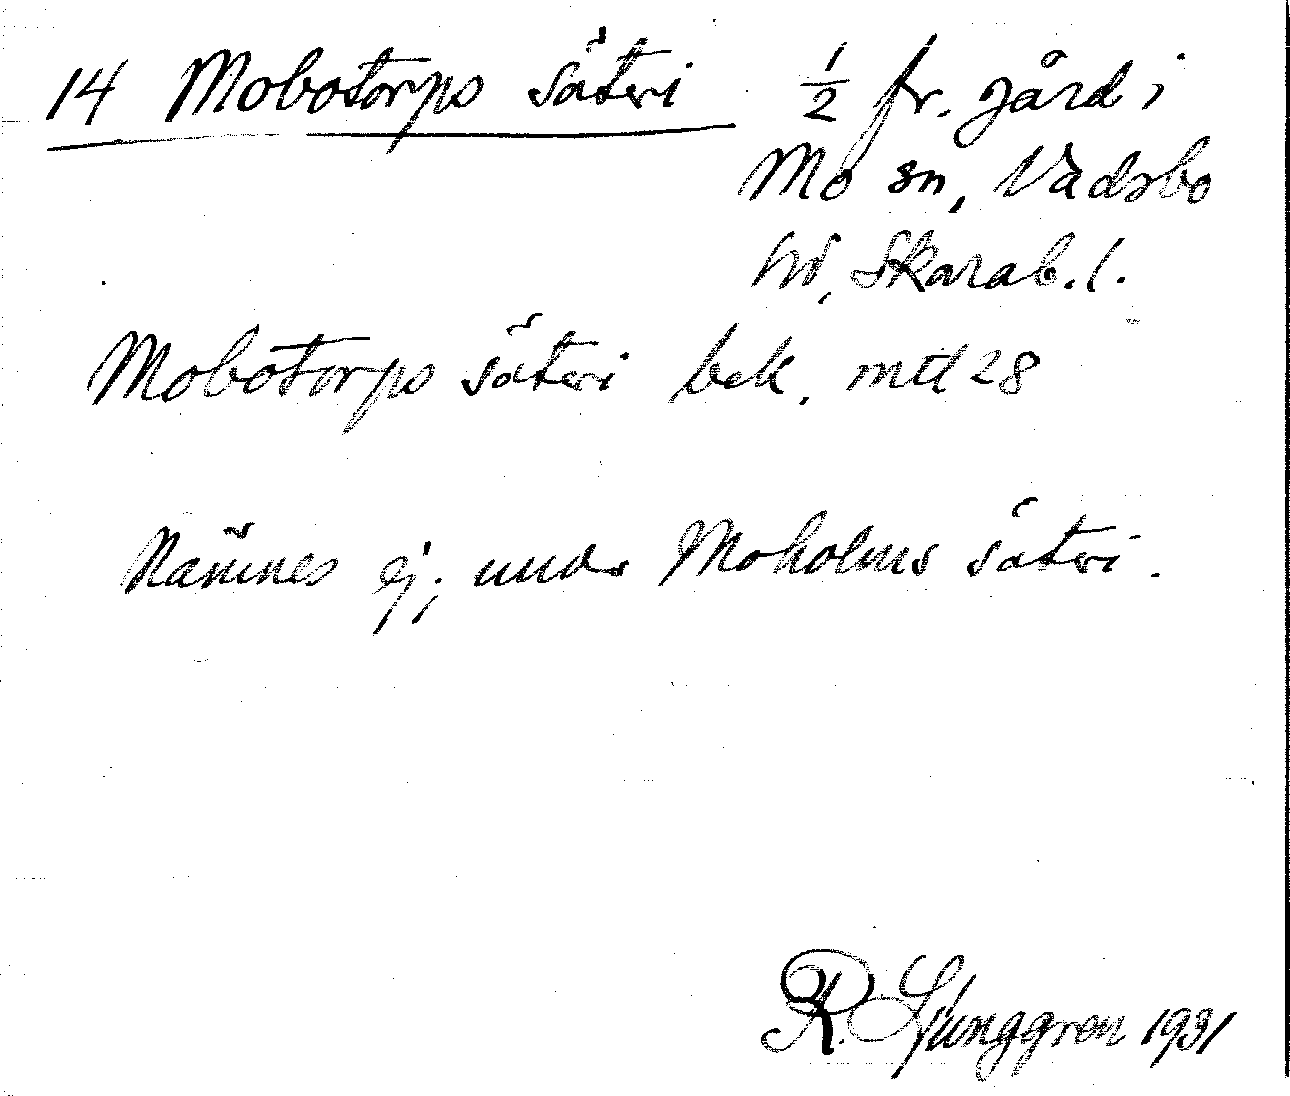 14 Mobotorps säteri ½ fr. gård i
Mo sn, Vadsbo
hd, Skarab. l.
Mobotorps säteri bek. mtl 28
Nämnes ej; under Moholms säteri.
R. Ljunggren 1931